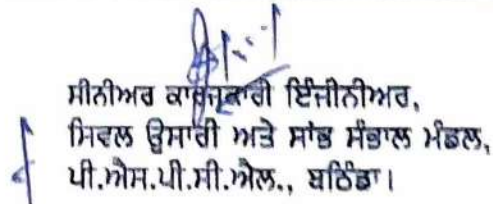 ਸੀਨੀਅਰ ਕਾਰਜਕਾਰੀ ਇੰਜੀਨੀਅਰ,
ਸਿਵਲ ਉਸਾਰੀ ਅਤੇ ਸਾਂਭ ਸੰਭਾਲ ਮੰਡਲ,
ਪੀ.ਐਸ.ਪੀ.ਸੀ.ਐਲ., ਬਠਿੰਡਾ।